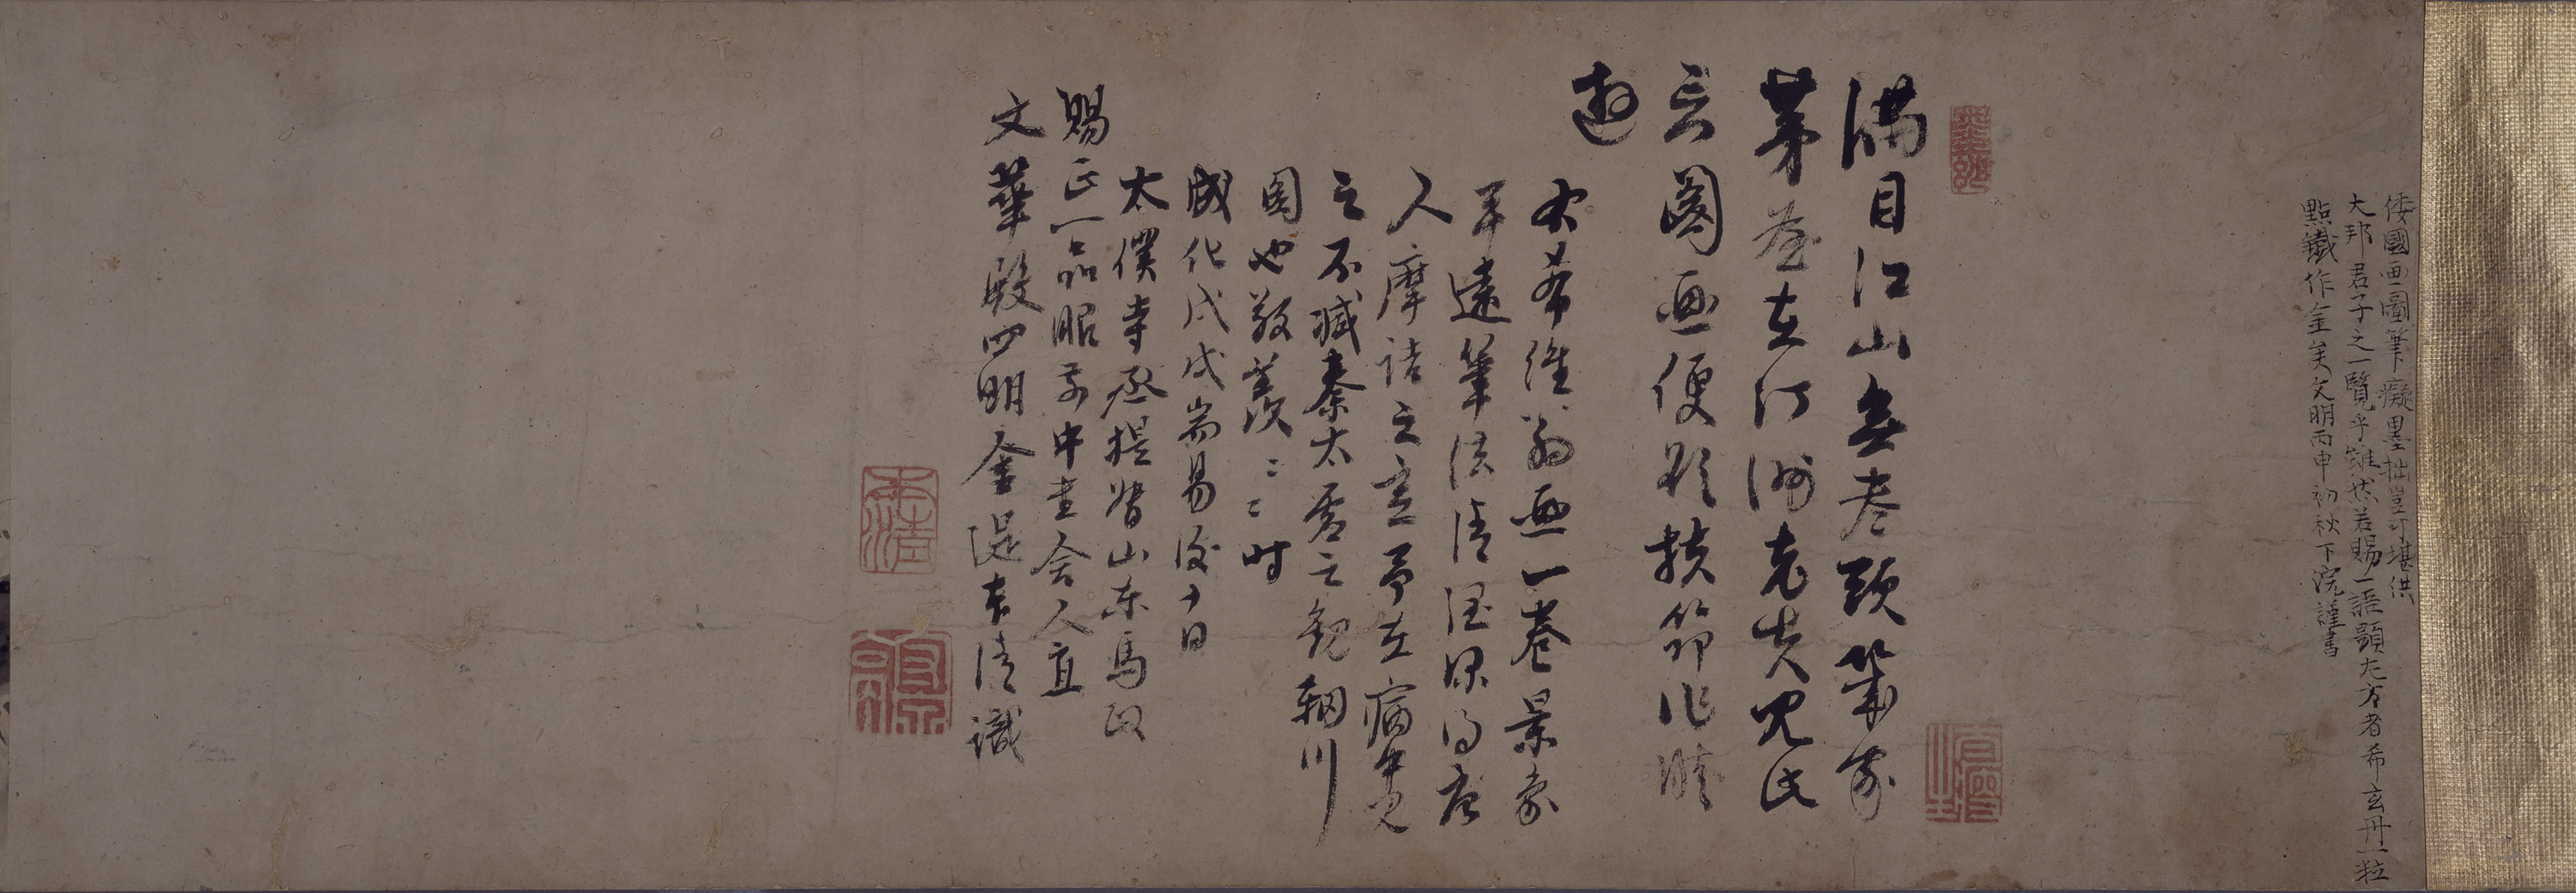 倭國画圖筆癡墨拙豈可堪供
大邦君子之一覽乎雖然若賜一語顕方者希玄丹一粒
點鐵作金矣文明丙申初秋下浣謹書
滿目江山無盡頭幾家
茅屋在汀洲老夫見此
圖画便欲扶筇作勝
遊
右希維翁画一卷景象
平遠筆法清润深得唐
人摩詰之意予在病中見
之不減秦太虛之觀輞川
圖也敬羨〻〻時
成化戊戌端昜後十日
太僕寺丞提督山東馬政
賜正一品服前中書舍人直
文華殿四明金湜本清識